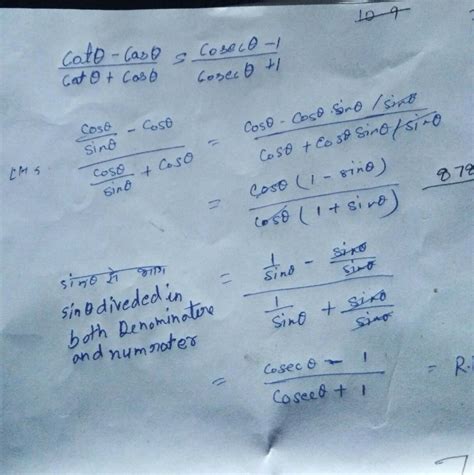 10-9
Cotθ - Cosθ / Cotθ + Cosθ = Cosecθ - 1 / Cosecθ + 1
LHS
Cosθ/Sinθ - Cosθ / Cosθ/Sinθ + Cosθ = Cosθ - Cosθ · Sinθ / Sinθ / Cosθ + Cosθ Sinθ / Sinθ
= Cosθ (1 - Sinθ) / Cosθ (1 + Sinθ)
878
sinθ से भाग
sinθ diveded in
both Denominatore
and numrater
= 1/Sinθ - Sinθ/Sinθ / 1/Sinθ + Sinθ/Sinθ
= Cosecθ - 1 / Cosecθ + 1 = R.